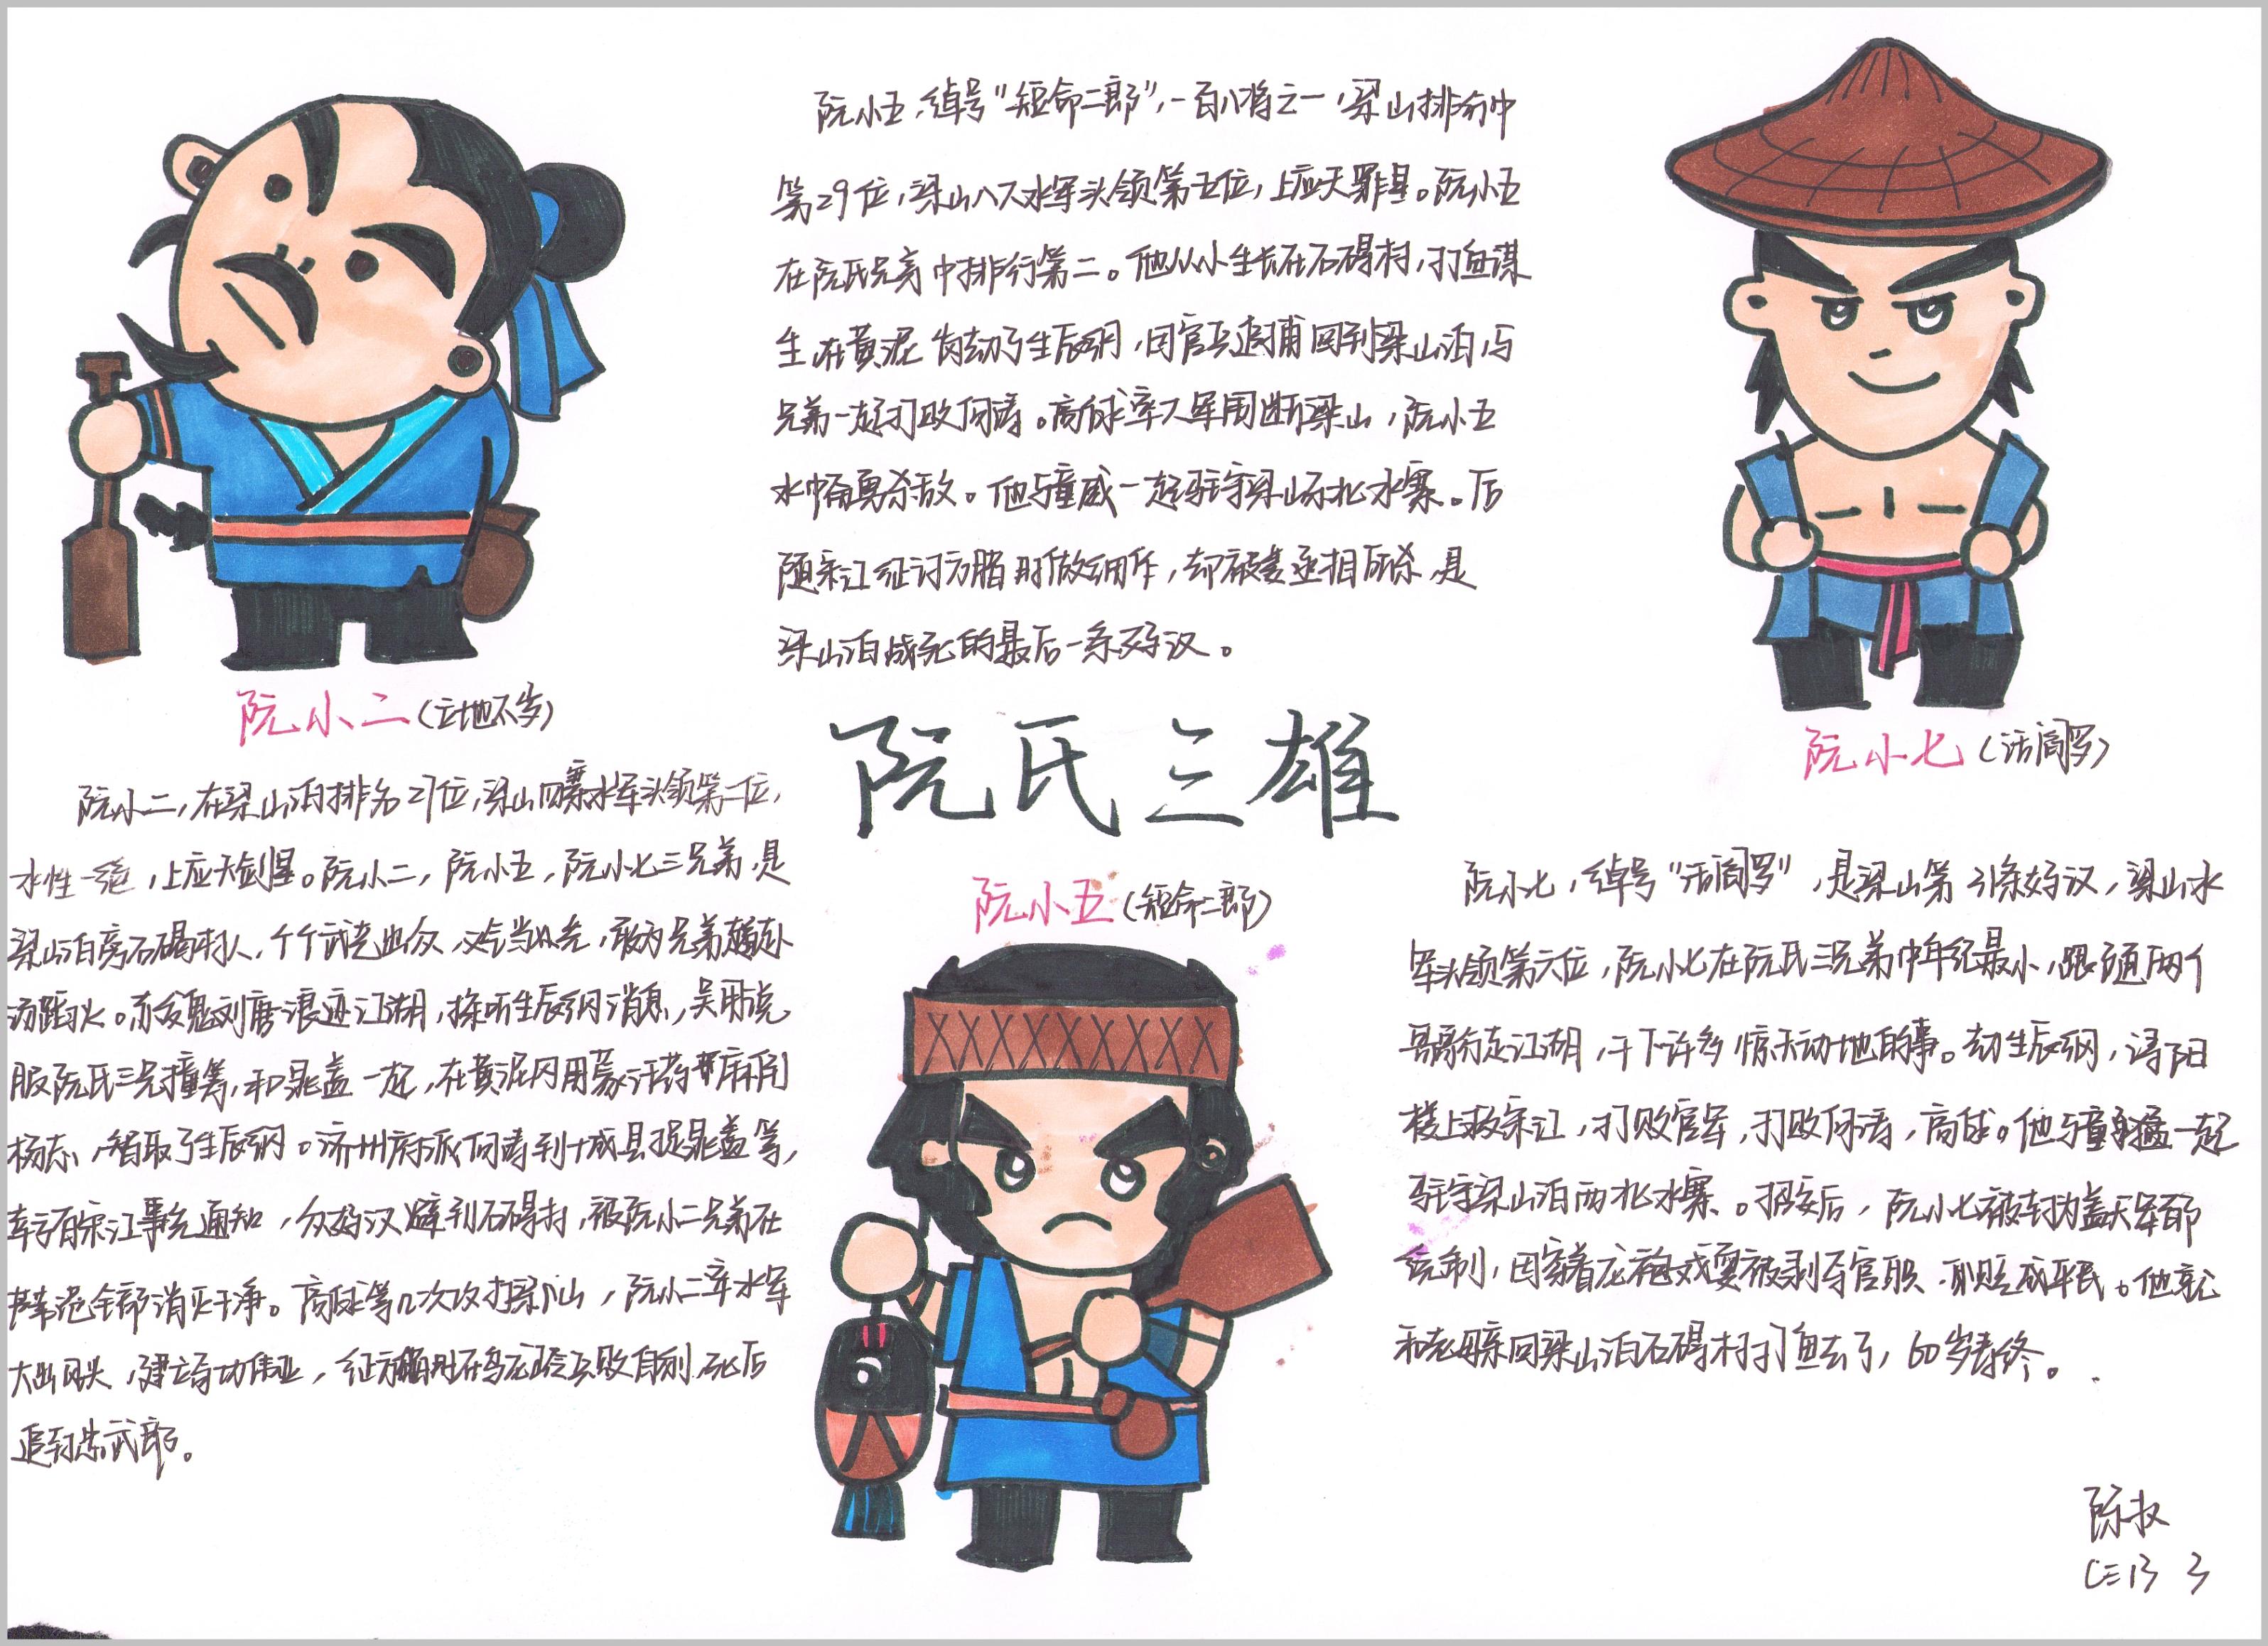 阮小五,绰号"短命二郎",一百八将之一,梁山排行中
第29位,梁山八大水军头领第五位,上应天罪星。阮小五
在阮氏兄弟中排行第二。他从小生长在石碣村,打鱼谋
生在黄泥岗劫了生辰纲,因官兵追捕回到梁山泊与
兄弟一起打败何涛。高俅率大军围断梁山,阮小五
水中奋勇杀敌。他与童威一起驻守梁山东北水寨。后
随宋江征讨方腊时做细作,却被娄丞相所杀,是
梁山泊战死的最后一条好汉。
阮小二(立地太岁)
阮小二,在梁山泊排名27位,梁山四寨水军头领第二位,
水性一绝,上应天剑星。阮小二,阮小五,阮小七三兄弟,是
梁山泊旁石碣村人,个个武艺出众,义气当先,敢为兄弟赴
汤蹈火。赤发鬼刘唐浪迹江湖,探听生辰纲消息,吴用说
服阮氏三兄撞筹,和晁盖一起,在黄泥冈用蒙汗药麻倒
杨志,智取了生辰纲。济州府派何涛到成县捉晁盖等,
幸有宋江事先通知,众好汉避到石碣村,被阮小二兄弟在
芦苇荡全部消灭干净。高俅等几次攻打梁山,阮小二率水军
大出风头,建立奇功伟业,征方腊时在乌龙岭兵败自刎死后
追封忠武郎。
阮氏三雄
阮小五(短命二郎)
阮小七(活阎罗)
阮小七,绰号"活阎罗",是梁山第31条好汉,梁山水
军头领第六位,阮小七在阮氏三兄弟中年纪最小,跟随两个
哥哥行走江湖,干下许多惊天动地的事。劫生辰纲,浔阳
楼上救宋江,打败官军,打败何涛,高俅。他与童猛一起
驻守梁山泊西北水寨。招安后,阮小七被封为盖天军都
统制,因穿着龙袍戏耍被剥夺官职,贬成平民。他就
和老母亲回梁山泊石碣村打鱼去了,60岁寿终。